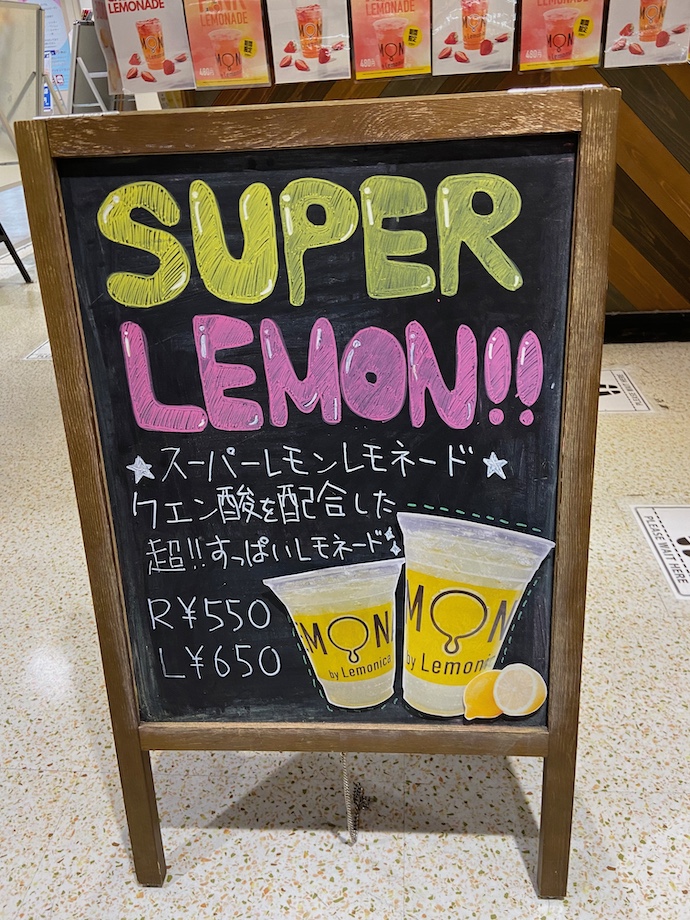 LEMONADE
LEMONADE
LEMONADE
LEMONADE
480
480
480
SUPER
LEMON!!
★スーパーレモンレモネード★
クエン酸を配合した
超!!すっぱいレモネード
R¥550
L¥650
MON
by Lemonica
MON
by Lemonica
PLEASE WAIT HERE
PLEASE WAIT HERE